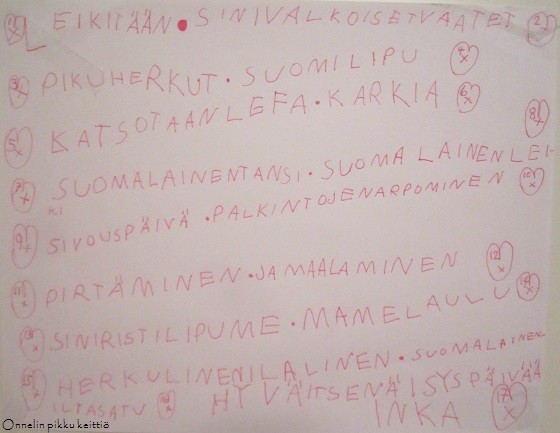 1 X LEIKITÄÄN • SINIVALKOISETVAATET 2 X
3 X PIKUHERKUT • SUOMILIPU 4 X
5 X KATSOTAANLEFA • KARKIA 6 X
7 X SUOMALAINENTANSI • SUOMALAINENLEI- 8 X
KI
9 X SIVOUSPÄIVÄ • PALKINTOJENARPOMINEN 10 X
11 X PIRTÄMINEN • JAMAALAMINEN 12 X
13 X SINIRISTILIPUME • MAMELAULU 14 X
15 X HERKULINENILALINEN • SUOMALAINEN
ILTASATU X HYVÄITSENÄISYSPÄIVÄÄ
INKA X
Onnelin pikku keittiö